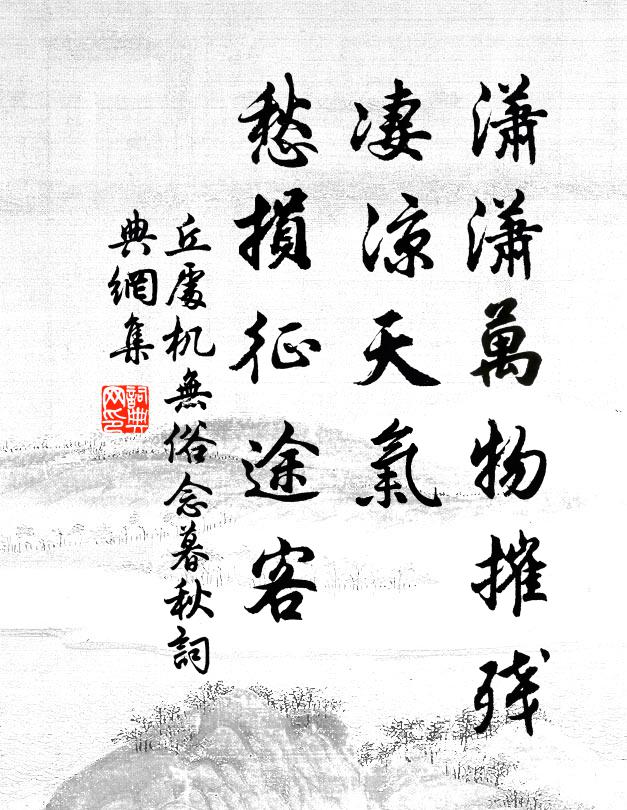 潇潇萬物摧残
凄凉天氣
愁損征途客
丘處机無俗念暮秋詞
典網集
詞典
网印